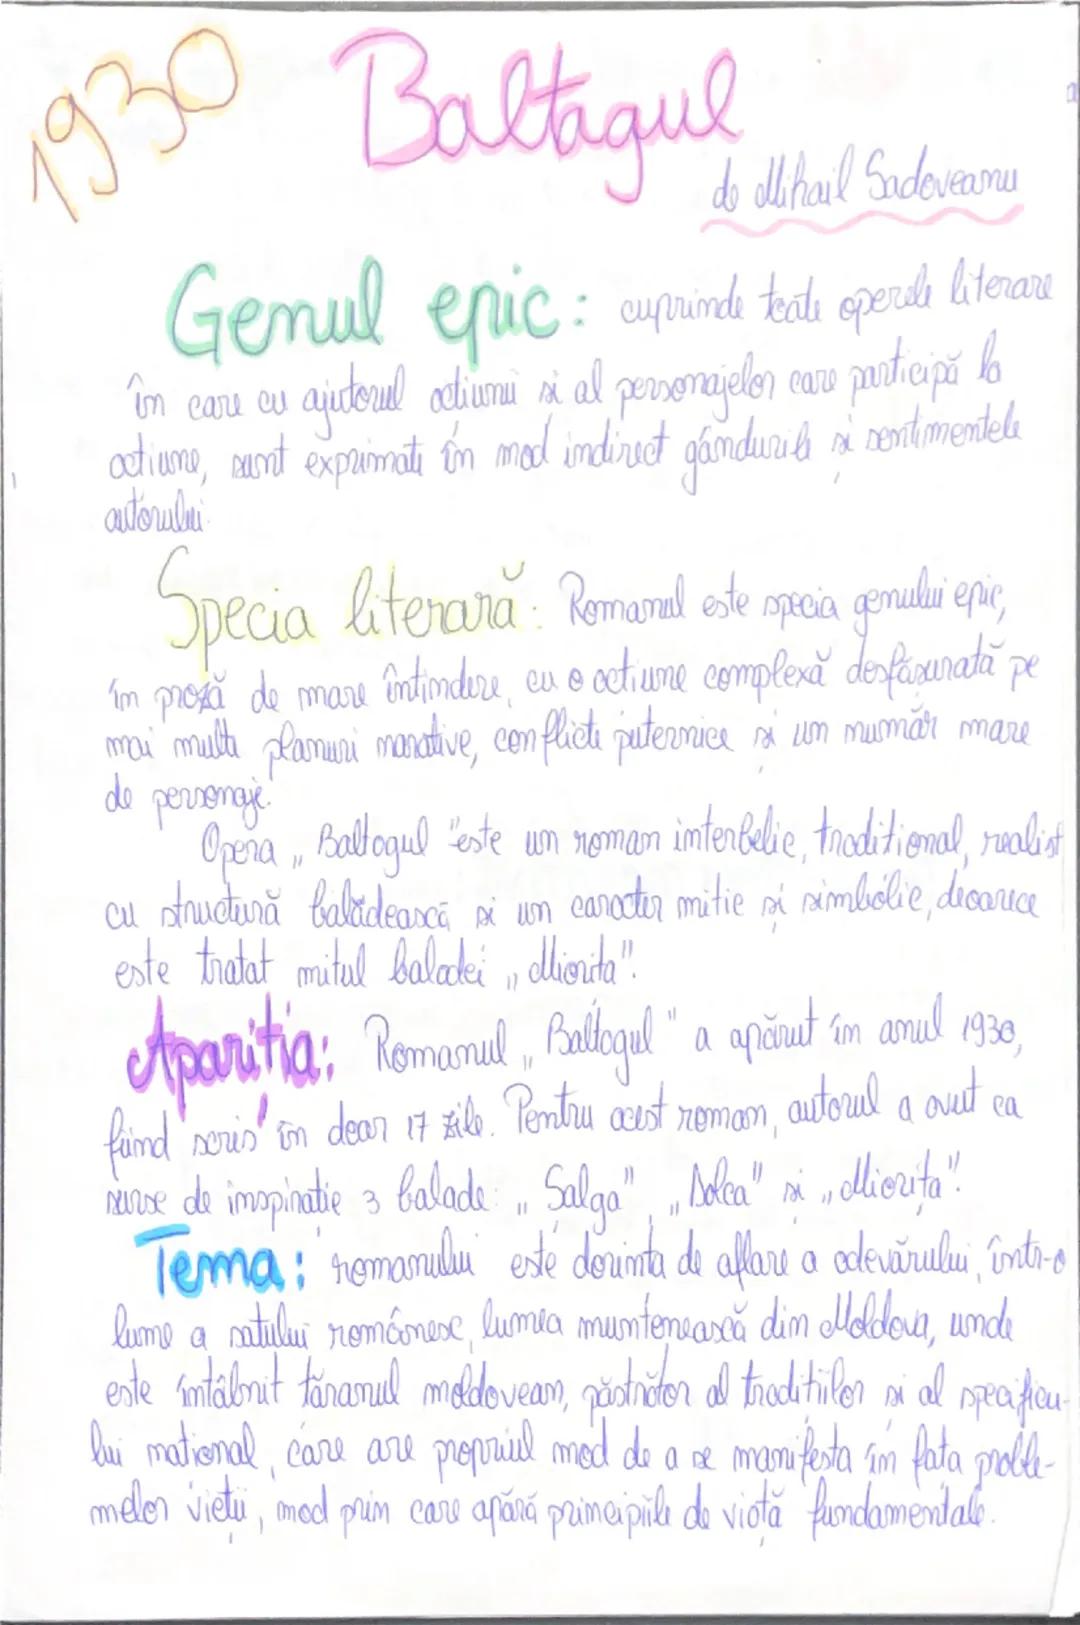 1930
Baltagul
de Mihail Sadoveanu
Genul epic: cuprinde toate operele literare
în care cu ajutorul acțiunii și al personajelor care participă la
acțiune, sunt exprimate în mod indirect gândurile și sentimentele
autorului.
Specia literară: Romanul este specia genului epic,
în proză de mare întindere, cu o acțiune complexă desfășurată pe
mai multe planuri narative, conflicte puternice și un număr mare
de personaje.
Opera „Baltagul" este un roman interbelic, tradițional, realist
cu structură baladească și un caracter mitic și simbolic, deoarece
este tratat mitul baladei „Miorița".
Apariția: Romanul „Baltagul" a apărut în anul 1930,
fiind scris în doar 17 zile. Pentru acest roman, autorul a avut ca
surse de inspirație 3 balade: „Salga", „Dolca" și „Miorița".
Tema: romanului este dorința de aflare a adevărului, într-o
lume a satului românesc, lumea muntenească din Moldova, unde
este întâlnit țăranul moldovean, păstrător al tradițiilor și al specificu-
lui național, care are propriul mod de a se manifesta în fața proble-
melor vieții, mod prin care apără principiile de viață fundamentale.